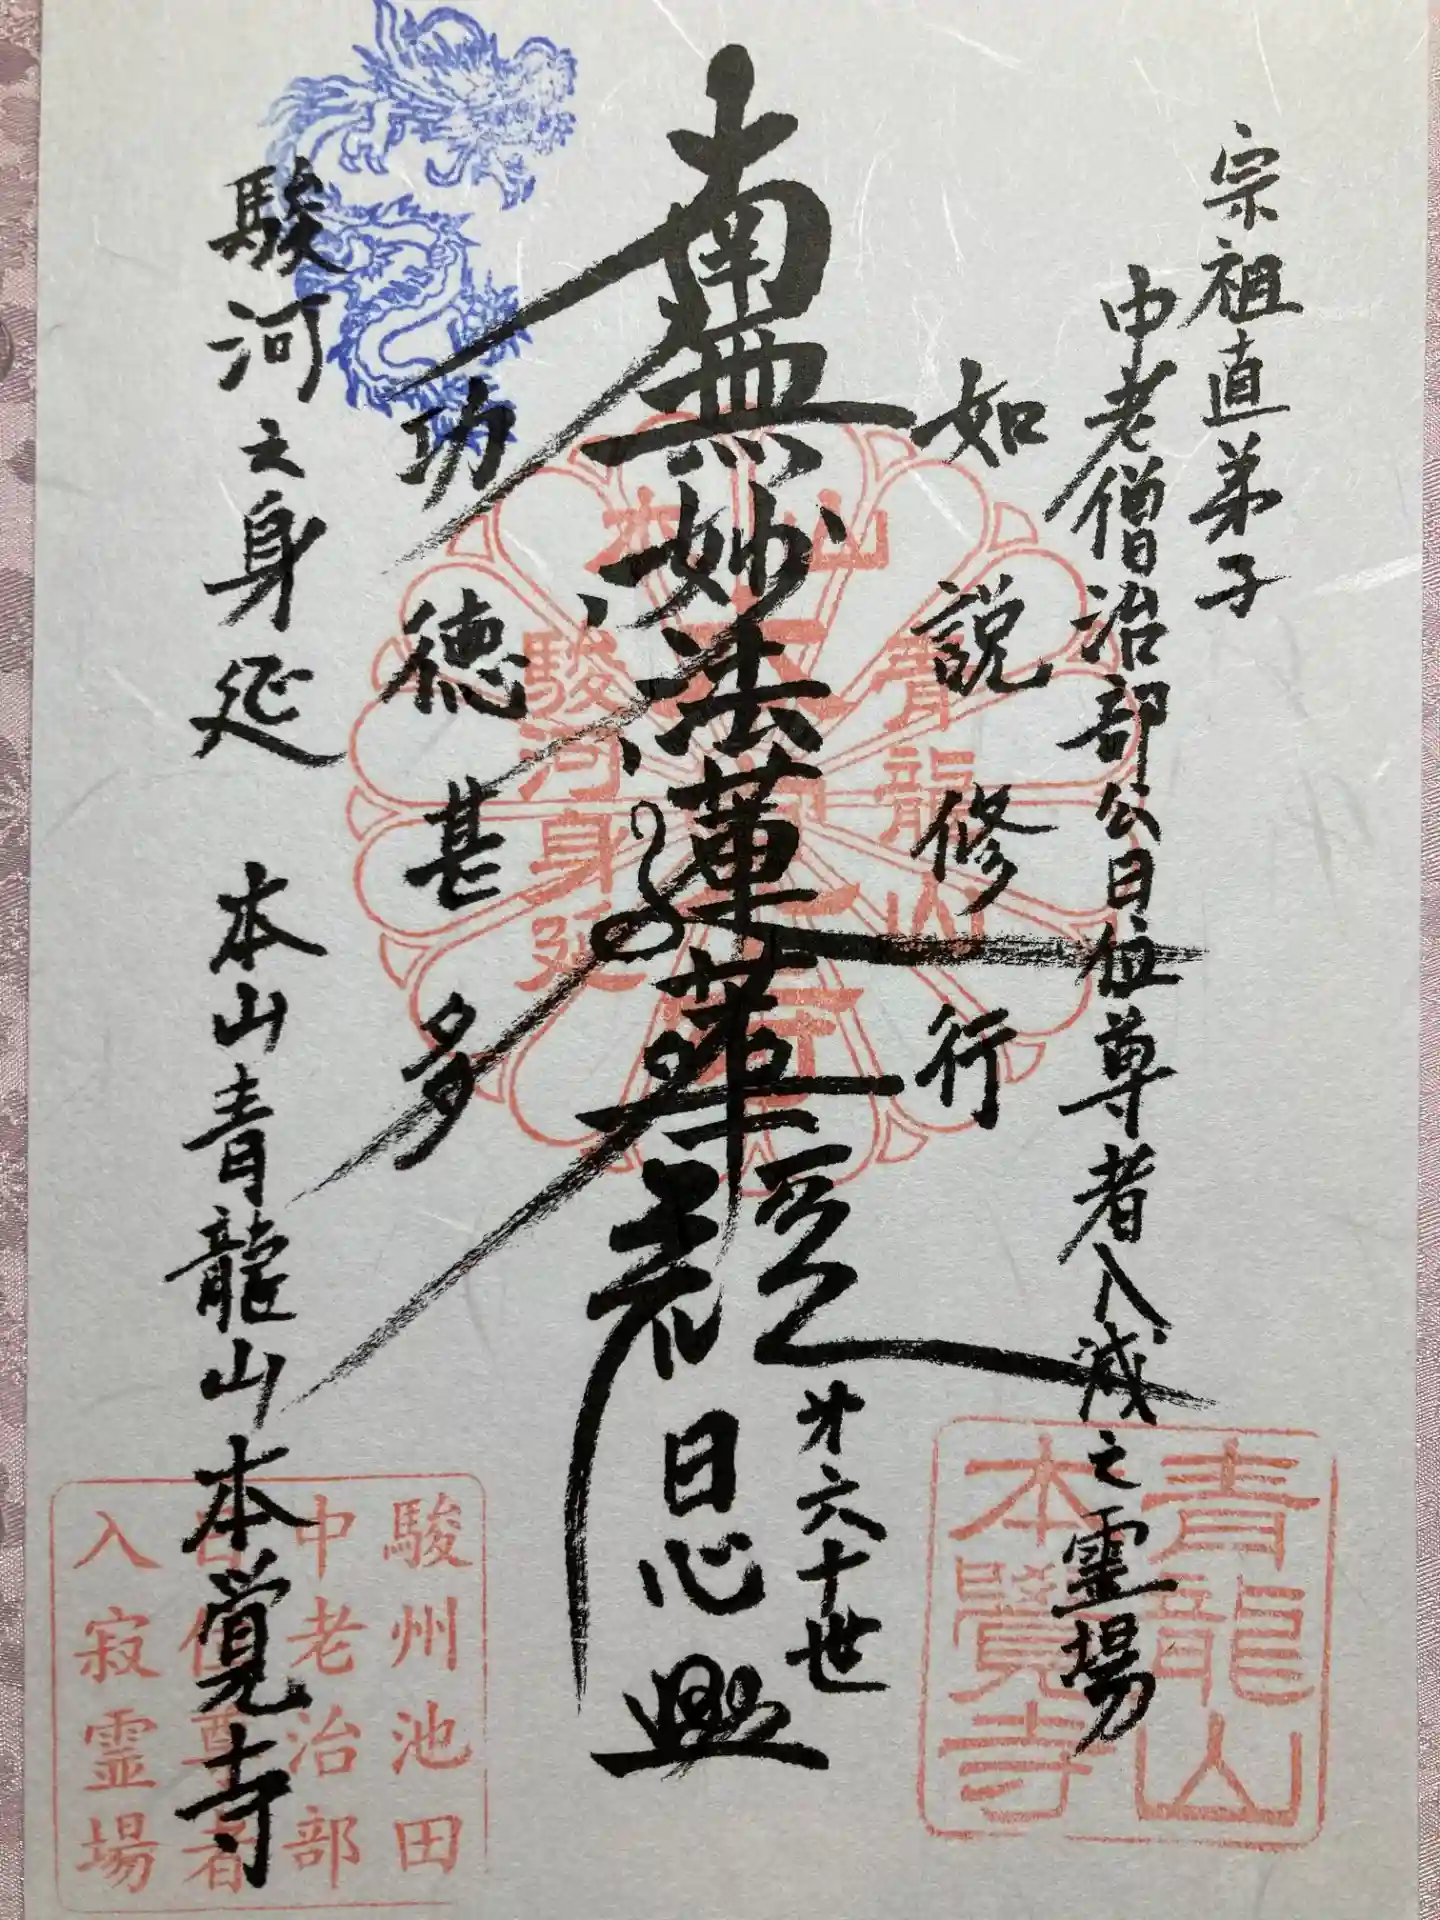 宗祖直弟子
中老僧治部公日位尊者入滅之霊場
如説修行
南無妙法蓮華経
第六十世
日心
功徳甚多
駿河之身延 本山青龍山本覚寺
本山
青龍山
本覺寺
駿河身延
青龍山
本覺寺
駿州池田
中老治部
日位尊者
入寂霊場